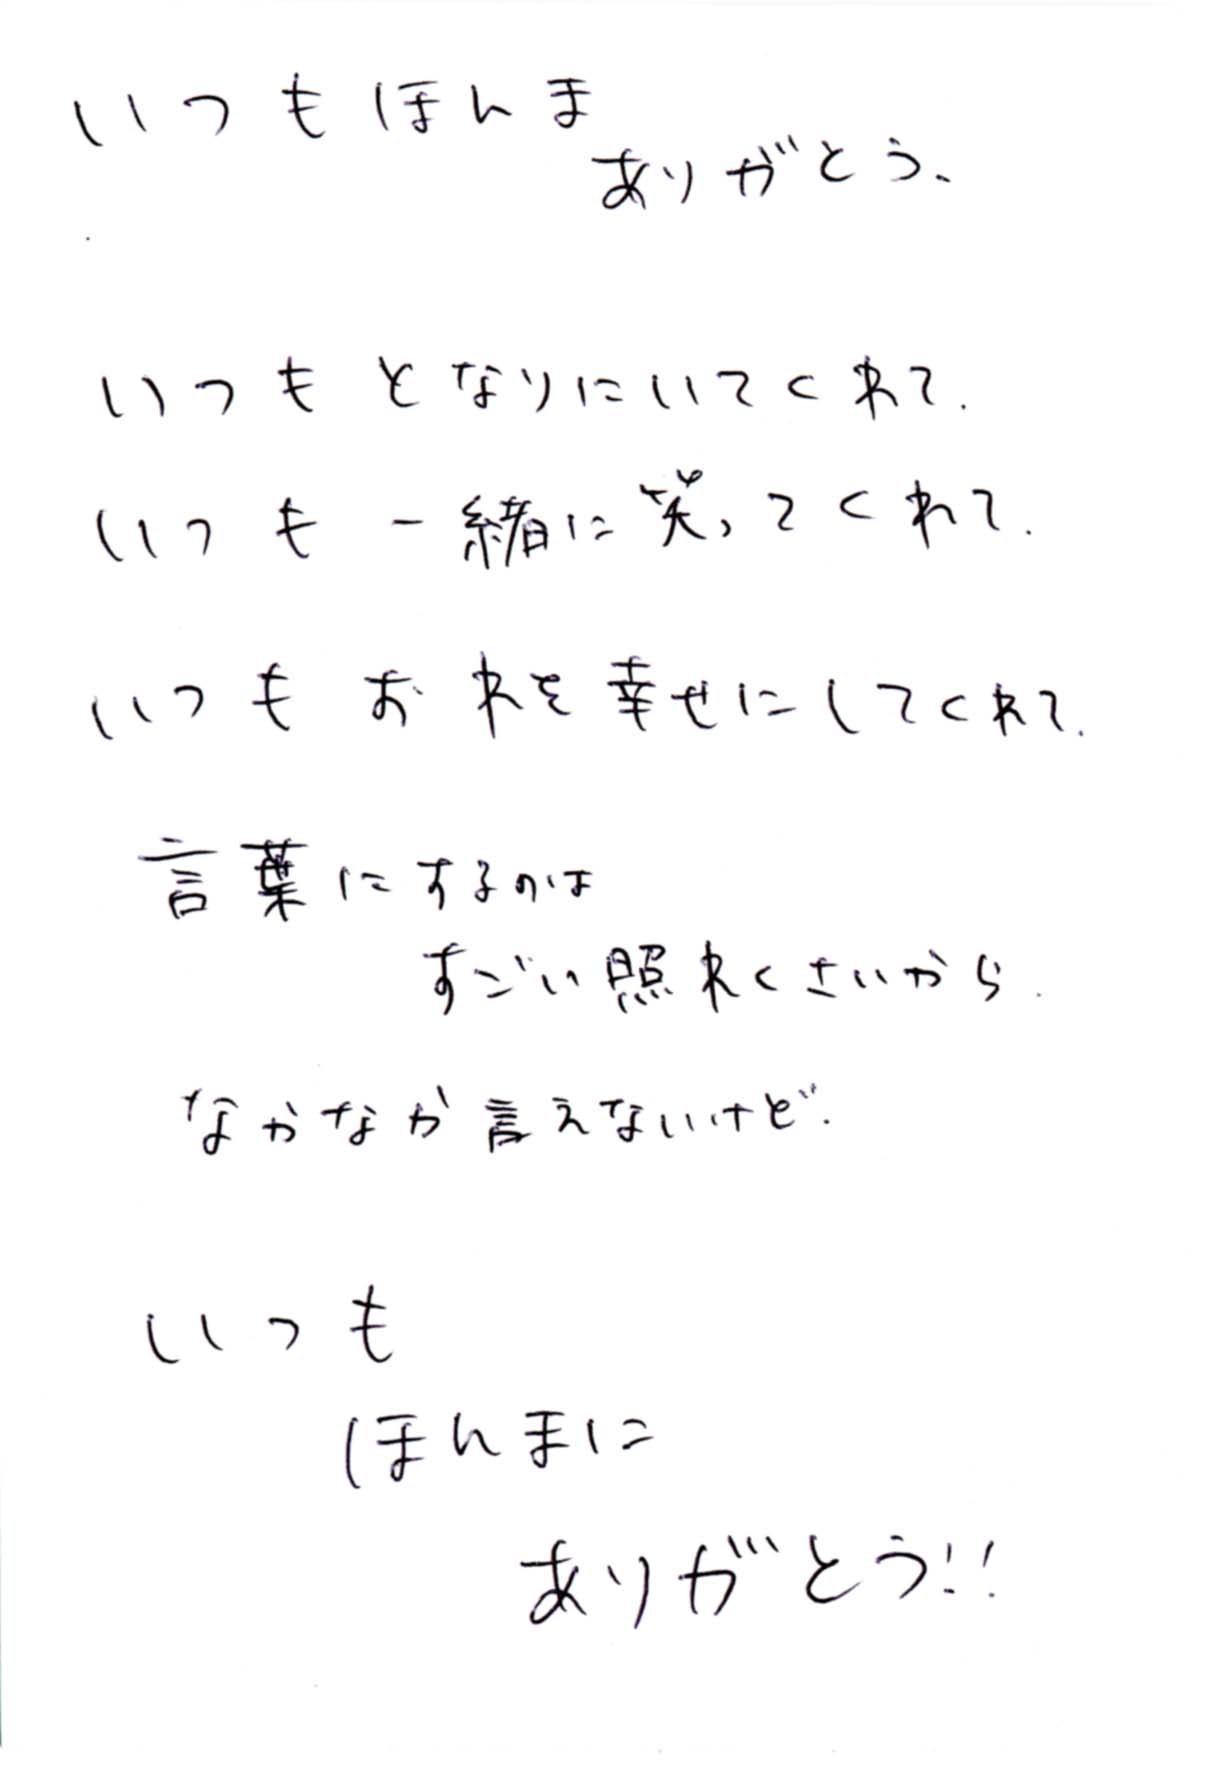 いつもほんま
ありがとう、
いつもとなりにいてくれて.
いつも一緒に笑ってくれて.
いつもおれを幸せにしてくれて.
言葉にするのは
すごい照れくさいから.
なかなか言えないけど.
いつも
ほんまに
ありがとう!!